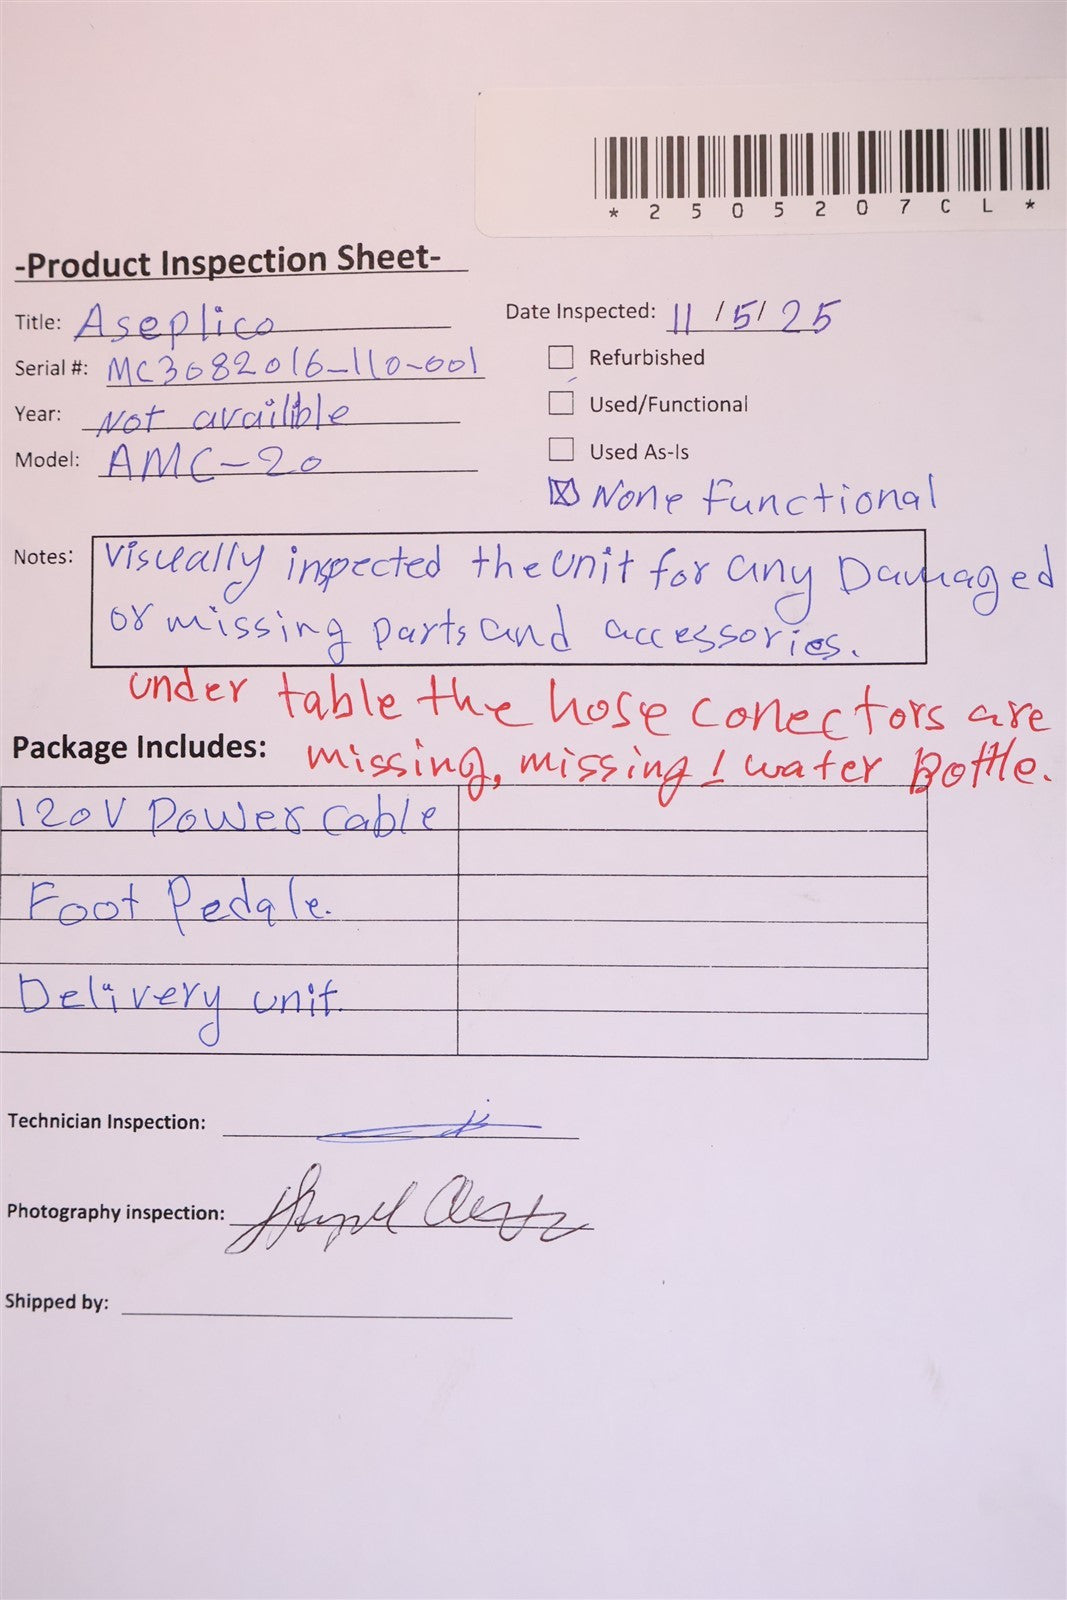 * 2 5 0 5 2 0 7 C L *
-Product Inspection Sheet-
Title: Aseplico
Date Inspected: 11 / 5 / 25
Serial #: MC3082016-110-001
Refurbished
Year: Not availible
Used/Functional
Model: AMC-20
Used As-Is
None Functional
Notes: Visually inspected the unit for any Damaged
or missing parts and accessories.
under table the hose conectors are
Package Includes: missing, missing 1 water Bottle.
120V Power cable
Foot Pedale.
Delivery unit.
Technician Inspection:
Photography inspection:
Shipped by: